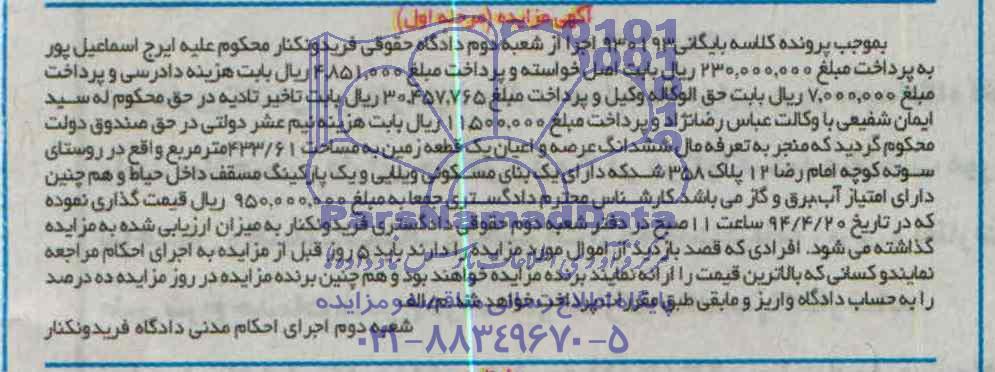 آگهی مزایده (مرحله اول)
بموجب پرونده کلاسه بایگانی ۹۳۰۱۹۳ اجرا از شعبه دوم دادگاه حقوقی فریدونکنار محکوم علیه ایرج اسماعیل پور
به پرداخت مبلغ ۲۳۰,۰۰۰,۰۰۰ ریال بابت اصل خواسته و پرداخت مبلغ ۴,۸۵۱,۰۰۰ ریال بابت هزینه دادرسی و پرداخت
مبلغ ۷,۰۰۰,۰۰۰ ریال بابت حق الوکاله وکیل و پرداخت مبلغ ۳۰,۴۵۷,۷۶۵ ریال بابت تاخیر تادیه در حق محکوم له سید
ایمان شفیعی با وکالت عباس رضانژاد و پرداخت مبلغ ۱۱,۵۰۰,۰۰۰ ریال بابت هزینه نیم عشر دولتی در حق صندوق دولت
محکوم گردید که منجر به تعرفه مال ششدانگ عرصه و اعیان یک قطعه زمین به مساحت ۴۳۳/۶۱ مترمربع واقع در روستای
سوته کوچه امام رضا ۱۲ پلاک ۳۵۸ شدکه دارای یک بنای مسکونی ویلایی و یک پارکینگ مسقف داخل حیاط و هم چنین
دارای امتیاز آب،برق و گاز می باشد کارشناس محترم دادگستری جمعا به مبلغ ۹۵۰,۰۰۰,۰۰۰ ریال قیمت گذاری نموده
که در تاریخ ۹۴/۴/۲۰ ساعت ۱۱ صبح در دفتر شعبه دوم حقوقی دادگستری فریدونکنار به میزان ارزیابی شده به مزایده
گذاشته می شود. افرادی که قصد بازدید از اموال مورد مزایده را دارند باید ۵ روز قبل از مزایده به اجرای احکام مراجعه
نمایندو کسانی که بالاترین قیمت را ارائه نمایند برنده مزایده خواهند بود و هم چنین برنده مزایده در روز مزایده ده درصد
را به حساب دادگاه واریز و مابقی طبق مقررات پرداخت خواهد شد.م/الف
شعبه دوم اجرای احکام مدنی دادگاه فریدونکنار
ParsNamadData
۰۲۱-۸۸۳۴۹۶۷۰-۵